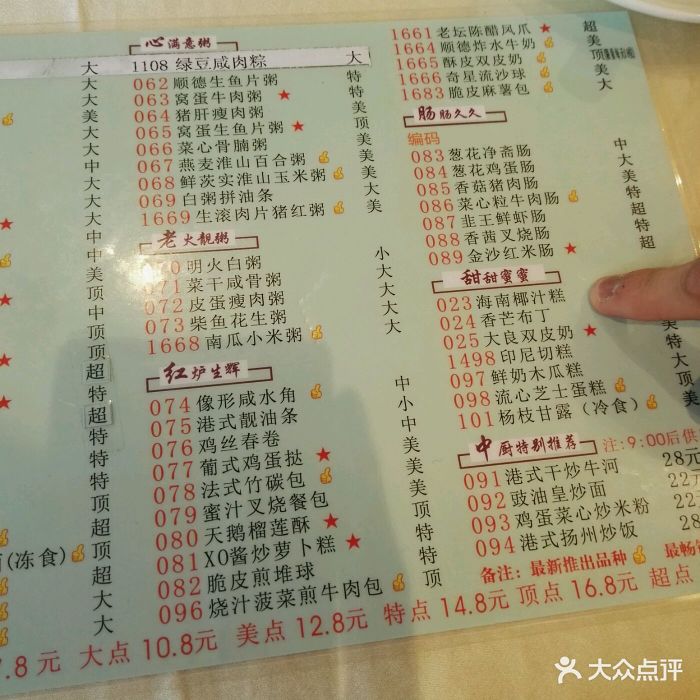 心满意粥
1108 绿豆咸肉粽 大
062 顺德生鱼片粥 特
063 窝蛋牛肉粥 特
064 猪肝瘦肉粥 美
065 窝蛋生鱼片粥 顶
066 菜心骨腩粥
067 燕麦淮山百合粥 美
068 鲜茨实淮山玉米粥 美
069 白粥拼油条 大
1669 生滚肉片猪红粥 美
老火靓粥
070 明火白粥 小
071 菜干咸骨粥 大
072 皮蛋瘦肉粥 大
073 柴鱼花生粥 大
1668 南瓜小米粥 大
红炉生辉
074 像形咸水角 中
075 港式靓油条 小
076 鸡丝春卷 中
077 葡式鸡蛋挞 美
078 法式竹碳包 美
079 蜜汁叉烧餐包
080 天鹅榴莲酥
081 XO酱炒萝卜糕
082 脆皮煎堆球
096 烧汁菠菜煎牛肉包
1661 老坛陈醋凤爪 超
1664 顺德炸水牛奶 美
1665 酥皮双皮奶 顶
1666 奇星流沙球 美
1683 脆皮麻薯包 大
肠肠久久
编码
083 葱花净斋肠 中
084 葱花鸡蛋肠 大
085 香菇猪肉肠 美
086 菜心粒牛肉肠 特
087 韭王鲜虾肠 超
088 香茜叉烧肠 特
089 金沙红米肠 超
甜甜蜜蜜
023 海南椰汁糕
024 香芒布丁
025 大良双皮奶
1498 印尼切糕
097 鲜奶木瓜糕
098 流心芝士蛋糕
101 杨枝甘露（冷食）
中厨特别推荐 注:9:00后供
091 港式干炒牛河 28元
092 豉油皇炒面 22元
093 鸡蛋菜心炒米粉
094 港式扬州炒饭 28
备注：最新推出品种 最畅
(冻食)
7.8元 大点 10.8元 美点 12.8元 特点 14.8元 顶点 16.8元 超点
大众点评